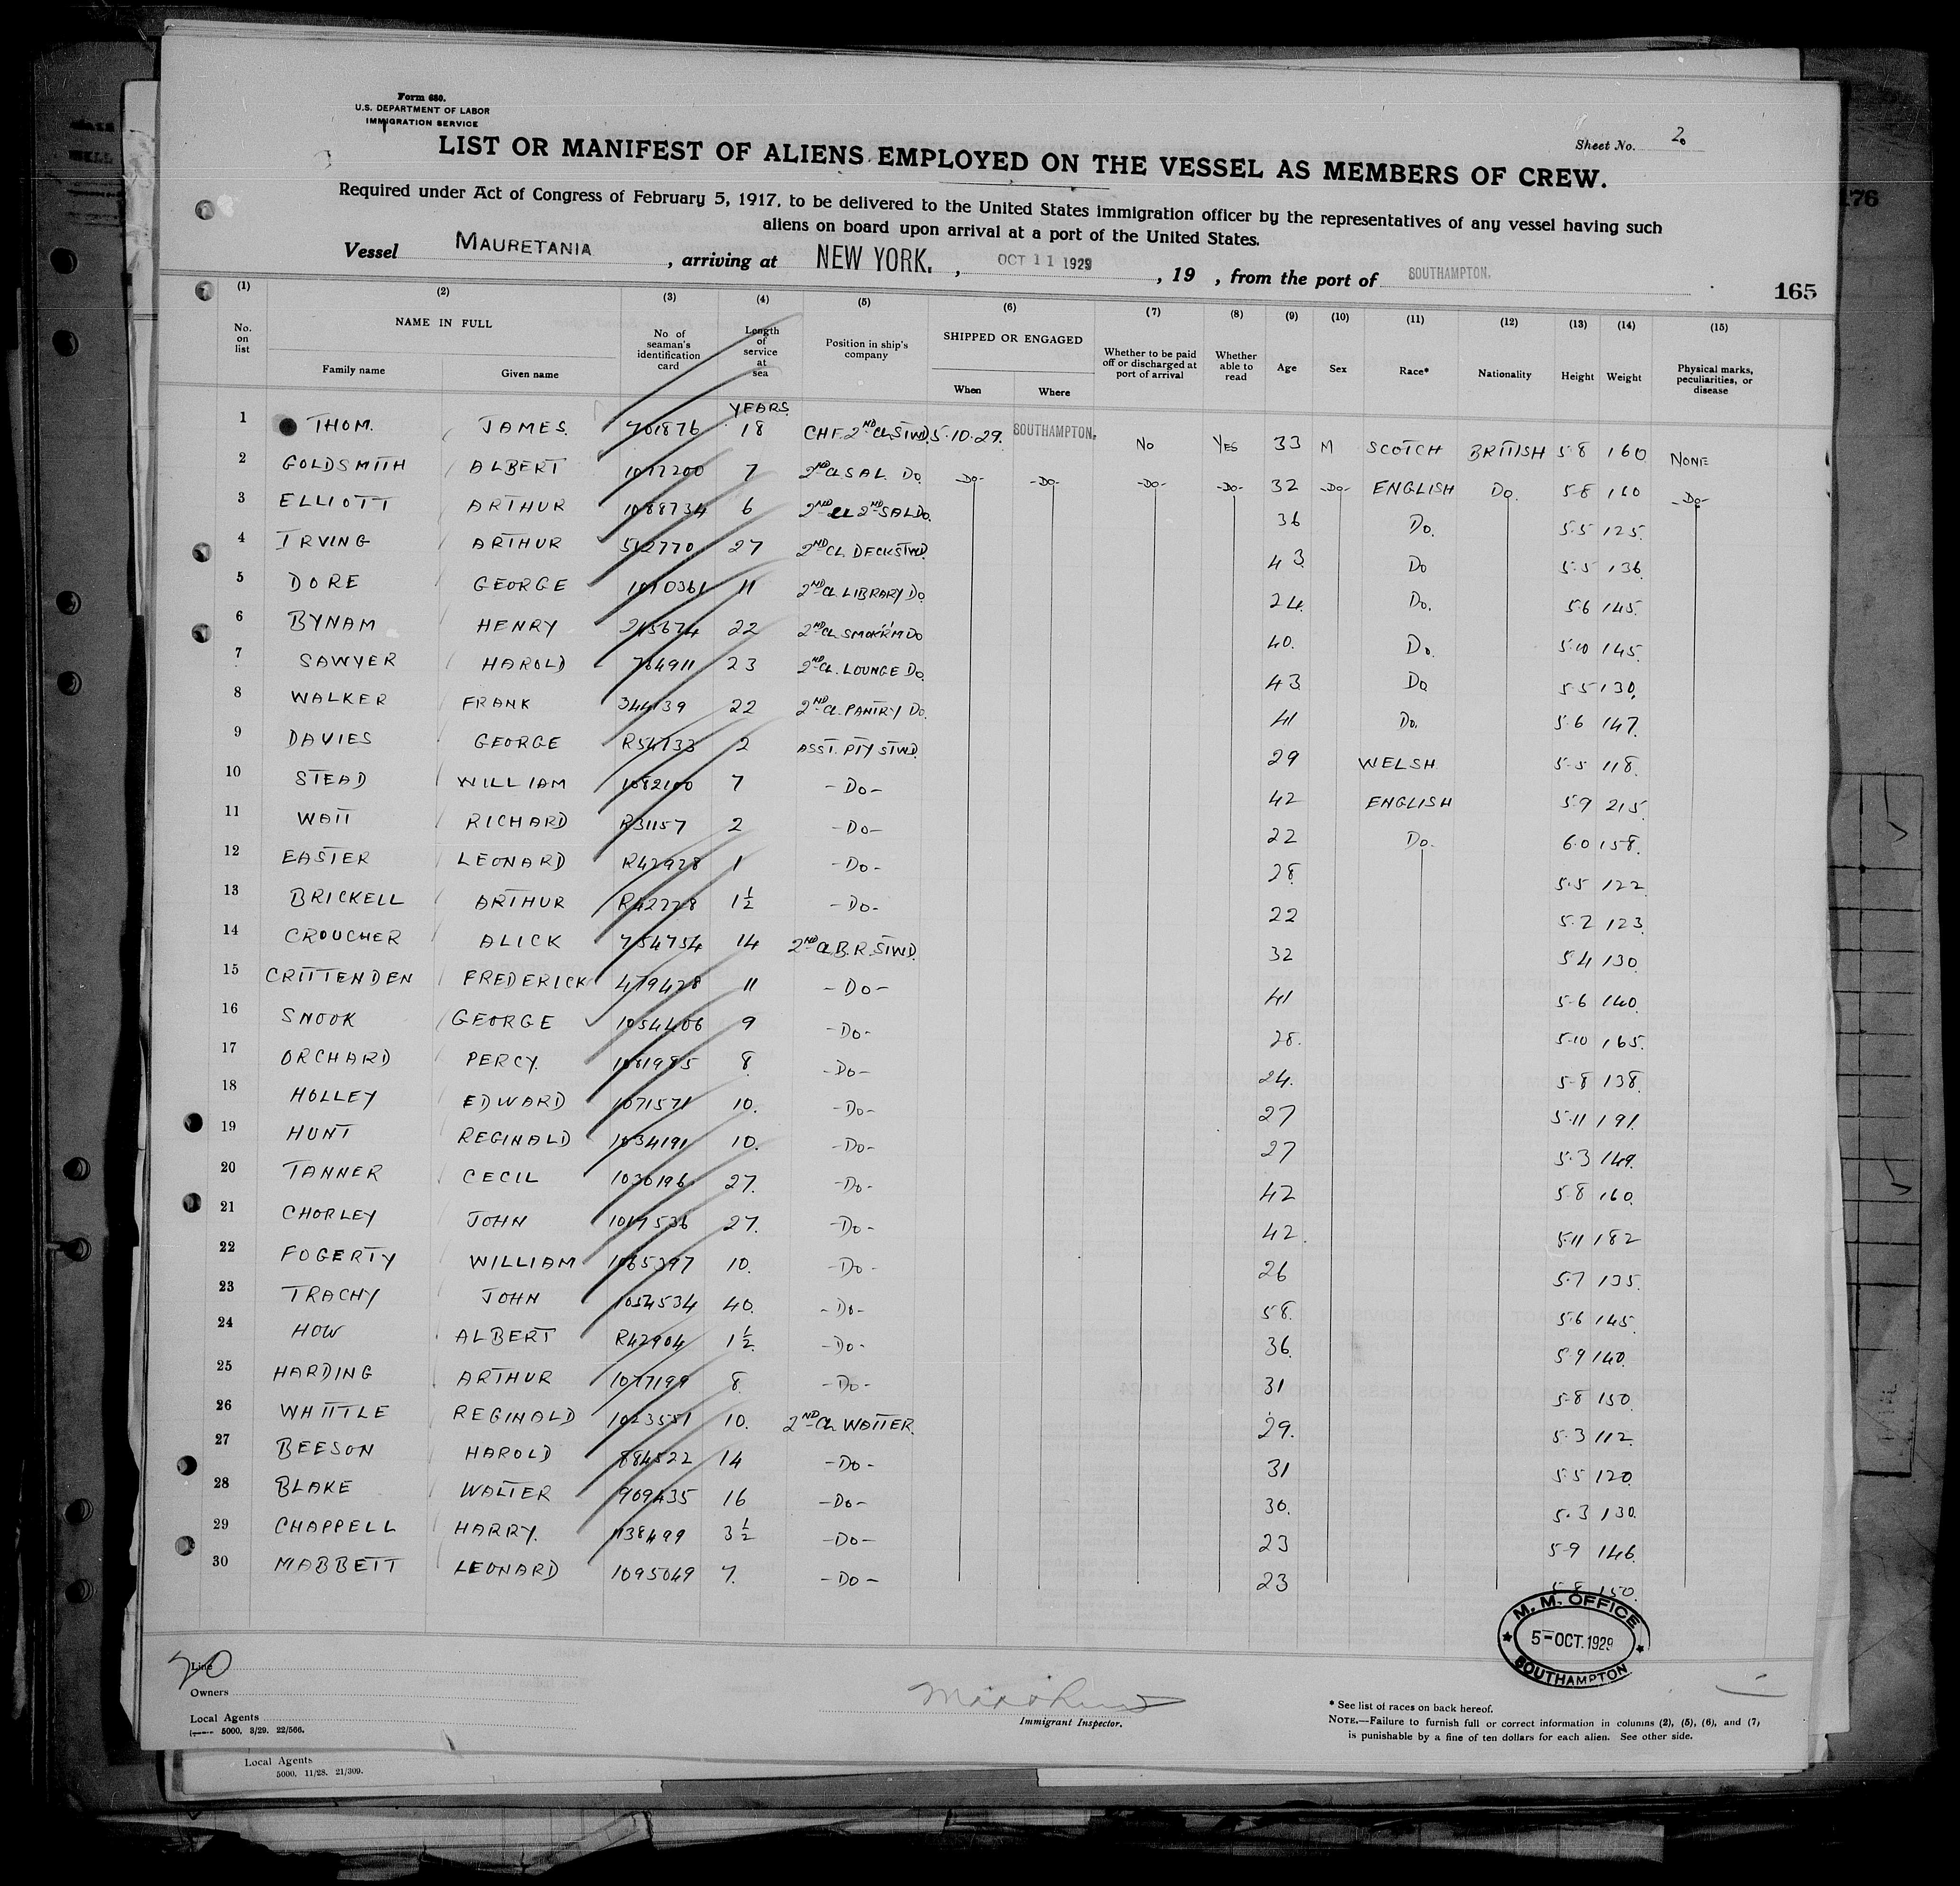 Form 680.
U.S. DEPARTMENT OF LABOR
IMMIGRATION SERVICE
Sheet No. 2.
LIST OR MANIFEST OF ALIENS EMPLOYED ON THE VESSEL AS MEMBERS OF CREW.
Required under Act of Congress of February 5, 1917, to be delivered to the United States immigration officer by the representatives of any vessel having such
aliens on board upon arrival at a port of the United States.
176
Vessel MAURETANIA, arriving at NEW YORK., OCT 11 1929, 19 , from the port of SOUTHAMPTON.
165
(1) (2) (3) (4) (5) (6) (7) (8) (9) (10) (11) (12) (13) (14) (15)
No. on list NAME IN FULL Family name Given name No. of seaman's identification card Length of service at sea Position in ship's company SHIPPED OR ENGAGED When Where Whether to be paid off or discharged at port of arrival Whether able to read Age Sex Race* Nationality Height Weight Physical marks, peculiarities, or disease
YEARS
1 THOM. JAMES. 701876 18 CHF. 2ND CL. STWD. 5.10.29. SOUTHAMPTON. NO YES 33 M SCOTCH BRITISH 5.8 160 NONE
2 GOLDSMITH ALBERT 1077200 7 2ND CL SAL. DO. -DO- -DO- -DO- -DO- 32 -DO- ENGLISH DO. 5.8 160 -DO-
3 ELLIOTT ARTHUR 1088734 6 2ND CL 2ND SAL DO. 36 DO. 5.5 125.
4 IRVING ARTHUR 512770 27 2ND CL. DECK STWD. 43 DO 5.5 136
5 DORE GEORGE 1010361 11 2ND CL. LIBRARY DO 24. DO. 5.6 145.
6 BYNAM HENRY 215674 22 2ND CL SMOK'R'M DO 40. DO. 5.10 145.
7 SAWYER HAROLD 764911 23 2ND CL. LOUNGE DO. 43 DO 5.5 130.
8 WALKER FRANK 344139 22 2ND CL. PANTRY DO. 41 DO. 5.6 147.
9 DAVIES GEORGE R54733 2 ASST. PTY STWD. 29 WELSH. 5.5 118.
10 STEAD WILLIAM 1082100 7 -DO- 42 ENGLISH 5.9 215.
11 WAIT RICHARD R31157 2 -DO- 22 DO. 6.0 158.
12 EASTER LEONARD R42928 1 -DO- 28. 5.5 122
13 BRICKELL ARTHUR R42778 1½ -DO- 22 5.2 123.
14 CROUCHER ALICK 754754 14 2ND CL B.R. STWD. 32 5.4 130.
15 CRITTENDEN FREDERICK 479428 11 -DO- 41 5.6 140.
16 SNOOK GEORGE 1054406 9 -DO- 28. 5.10 165.
17 ORCHARD PERCY. 1081985 8 -DO- 24. 5.8 138.
18 HOLLEY EDWARD 1071571 10. -DO- 27 5.11 191.
19 HUNT REGINALD 1034191 10. -DO- 27 5.3 149.
20 TANNER CECIL 1030196 27. -DO- 42 5.8 160.
21 CHORLEY JOHN 1017536 27. -DO- 42. 5.11 182
22 FOGERTY WILLIAM 1065397 10. -DO- 26 5.7 135.
23 TRACHY JOHN 1054534 40. -DO- 58. 5.6 145.
24 HOW ALBERT R42904 1½ -DO- 36. 5.9 140.
25 HARDING ARTHUR 1077199 8. -DO- 31 5.8 150.
26 WHITTLE REGINALD 1023551 10. 2ND CL. WAITER. 29. 5.3 112.
27 BEESON HAROLD 884522 14 -DO- 31 5.5 120.
28 BLAKE WALTER 909435 16 -DO- 30. 5.3 130.
29 CHAPPELL HARRY. 1138499 3½ -DO- 23 5.9 146.
30 MABBETT LEONARD 1095049 7. -DO- 23 5.8 150.
M. M. OFFICE
5-OCT.1929
SOUTHAMPTON
20
Line
Owners
Local Agents
5000. 3/29. 22/566.
Immigrant Inspector.
* See list of races on back hereof.
NOTE.—Failure to furnish full or correct information in columns (2), (5), (6), and (7)
is punishable by a fine of ten dollars for each alien. See other side.
Local Agents
5000. 11/28. 21/309.